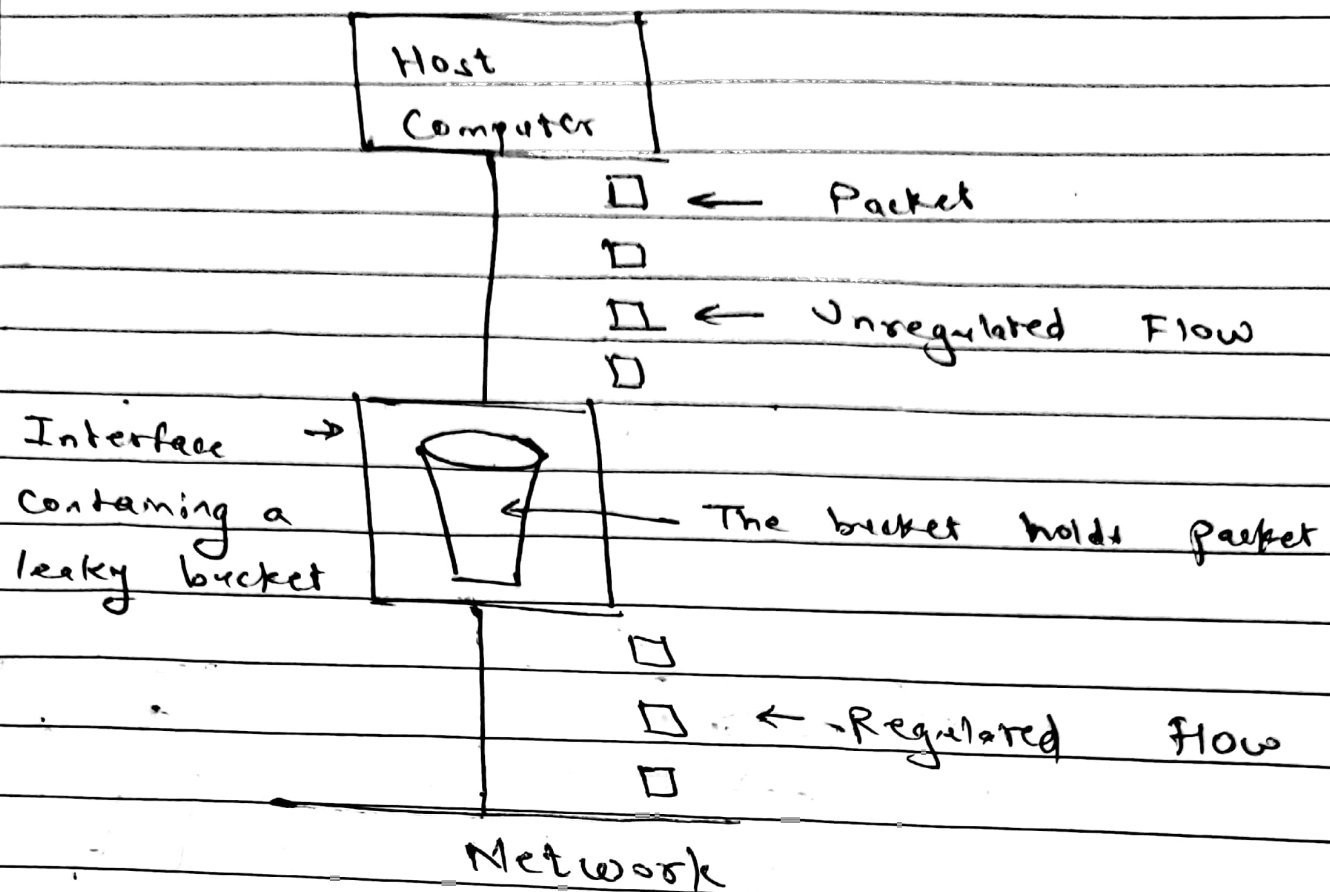 Host
Computer
← Packet
← Unregulated Flow
Interface →
Containing a
leaky bucket
The bucket holds packet
← Regulated Flow
Network